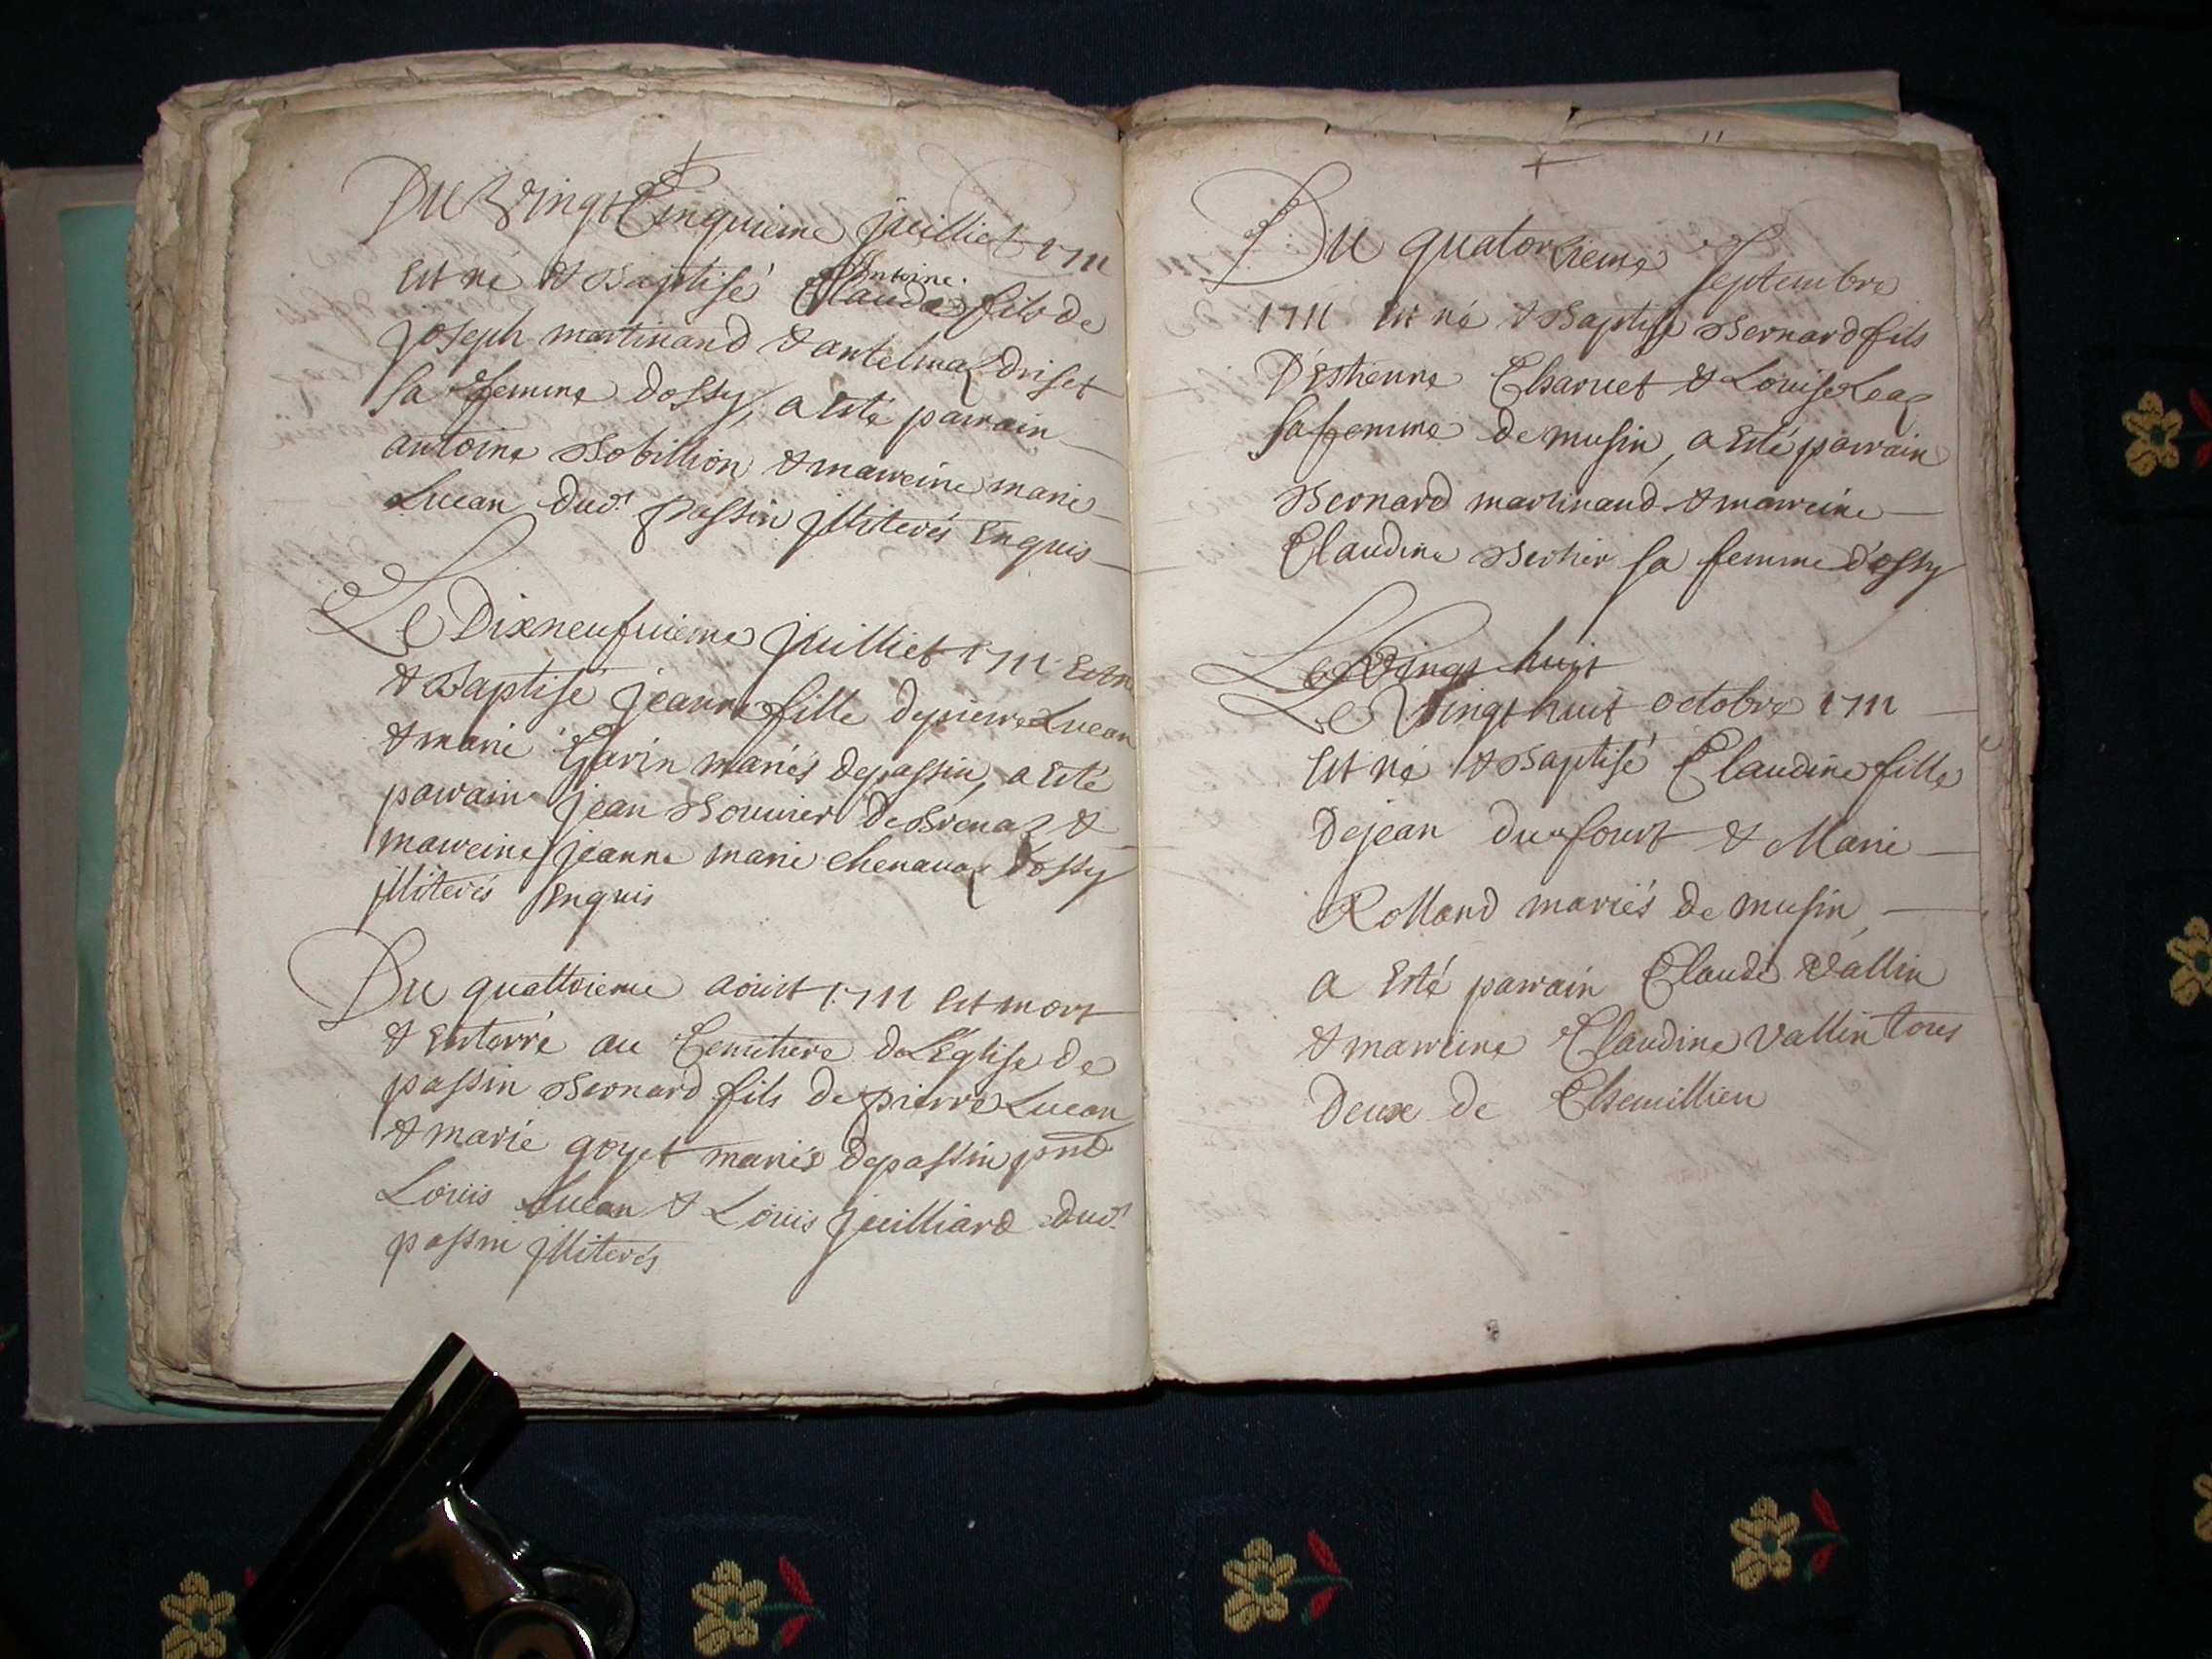 Du Vingt Cinquieme juilliet 1711
Est né & Baptisé Claude Antoine fils de
joseph martinand & antelmaz driset
sa femme dossy, a esté parrain
antoine Bobillion & marreine marie
Lucan dud.t passin jlliterés Enquis
Le Dixneufuieme juilliet 1711 Est n
& Baptisé jeanne fille de pierre Lucan
& marie Gavin mariés de passin, a esté
parrain jean Bouvier de Brenaz &
marreine jeanne marie chenavaz dossy
jlliterés Enquis
Du quattrieme aoust 1711 Est mort
& Enterré au Cemithere de L'Eglise de
passin Bernard fils de pierre Lucan
& marie goyet mariés de passin pnt
Louis Lucan & Louis juilliard dud.t
passin jlliterés
11
Du quatorzieme Septembre
1711 Est né & Baptisé Bernard fils
D'Estienne Charvet & Louise
sa femme de musin, a Esté parrain
Bernard martinand & marreine
Claudine Berthier sa femme d'ossy
Le Vingt huit
Le Vingt huit octobre 1711
Est né & Baptisé Claudine fille
De jean du fourt & Marie
Rolland mariés de musin,
a Esté parrain Claude Vallin
& marreine Claudine Vallin tous
Deux de Chemillieu